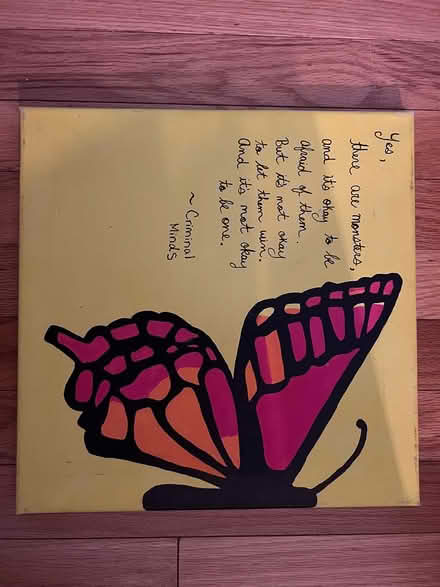 Yes,
there are monsters,
and it's okay to be
afraid of them.
But it's not okay
to let them win.
And it's not okay
to be one.
~ Criminal
Minds